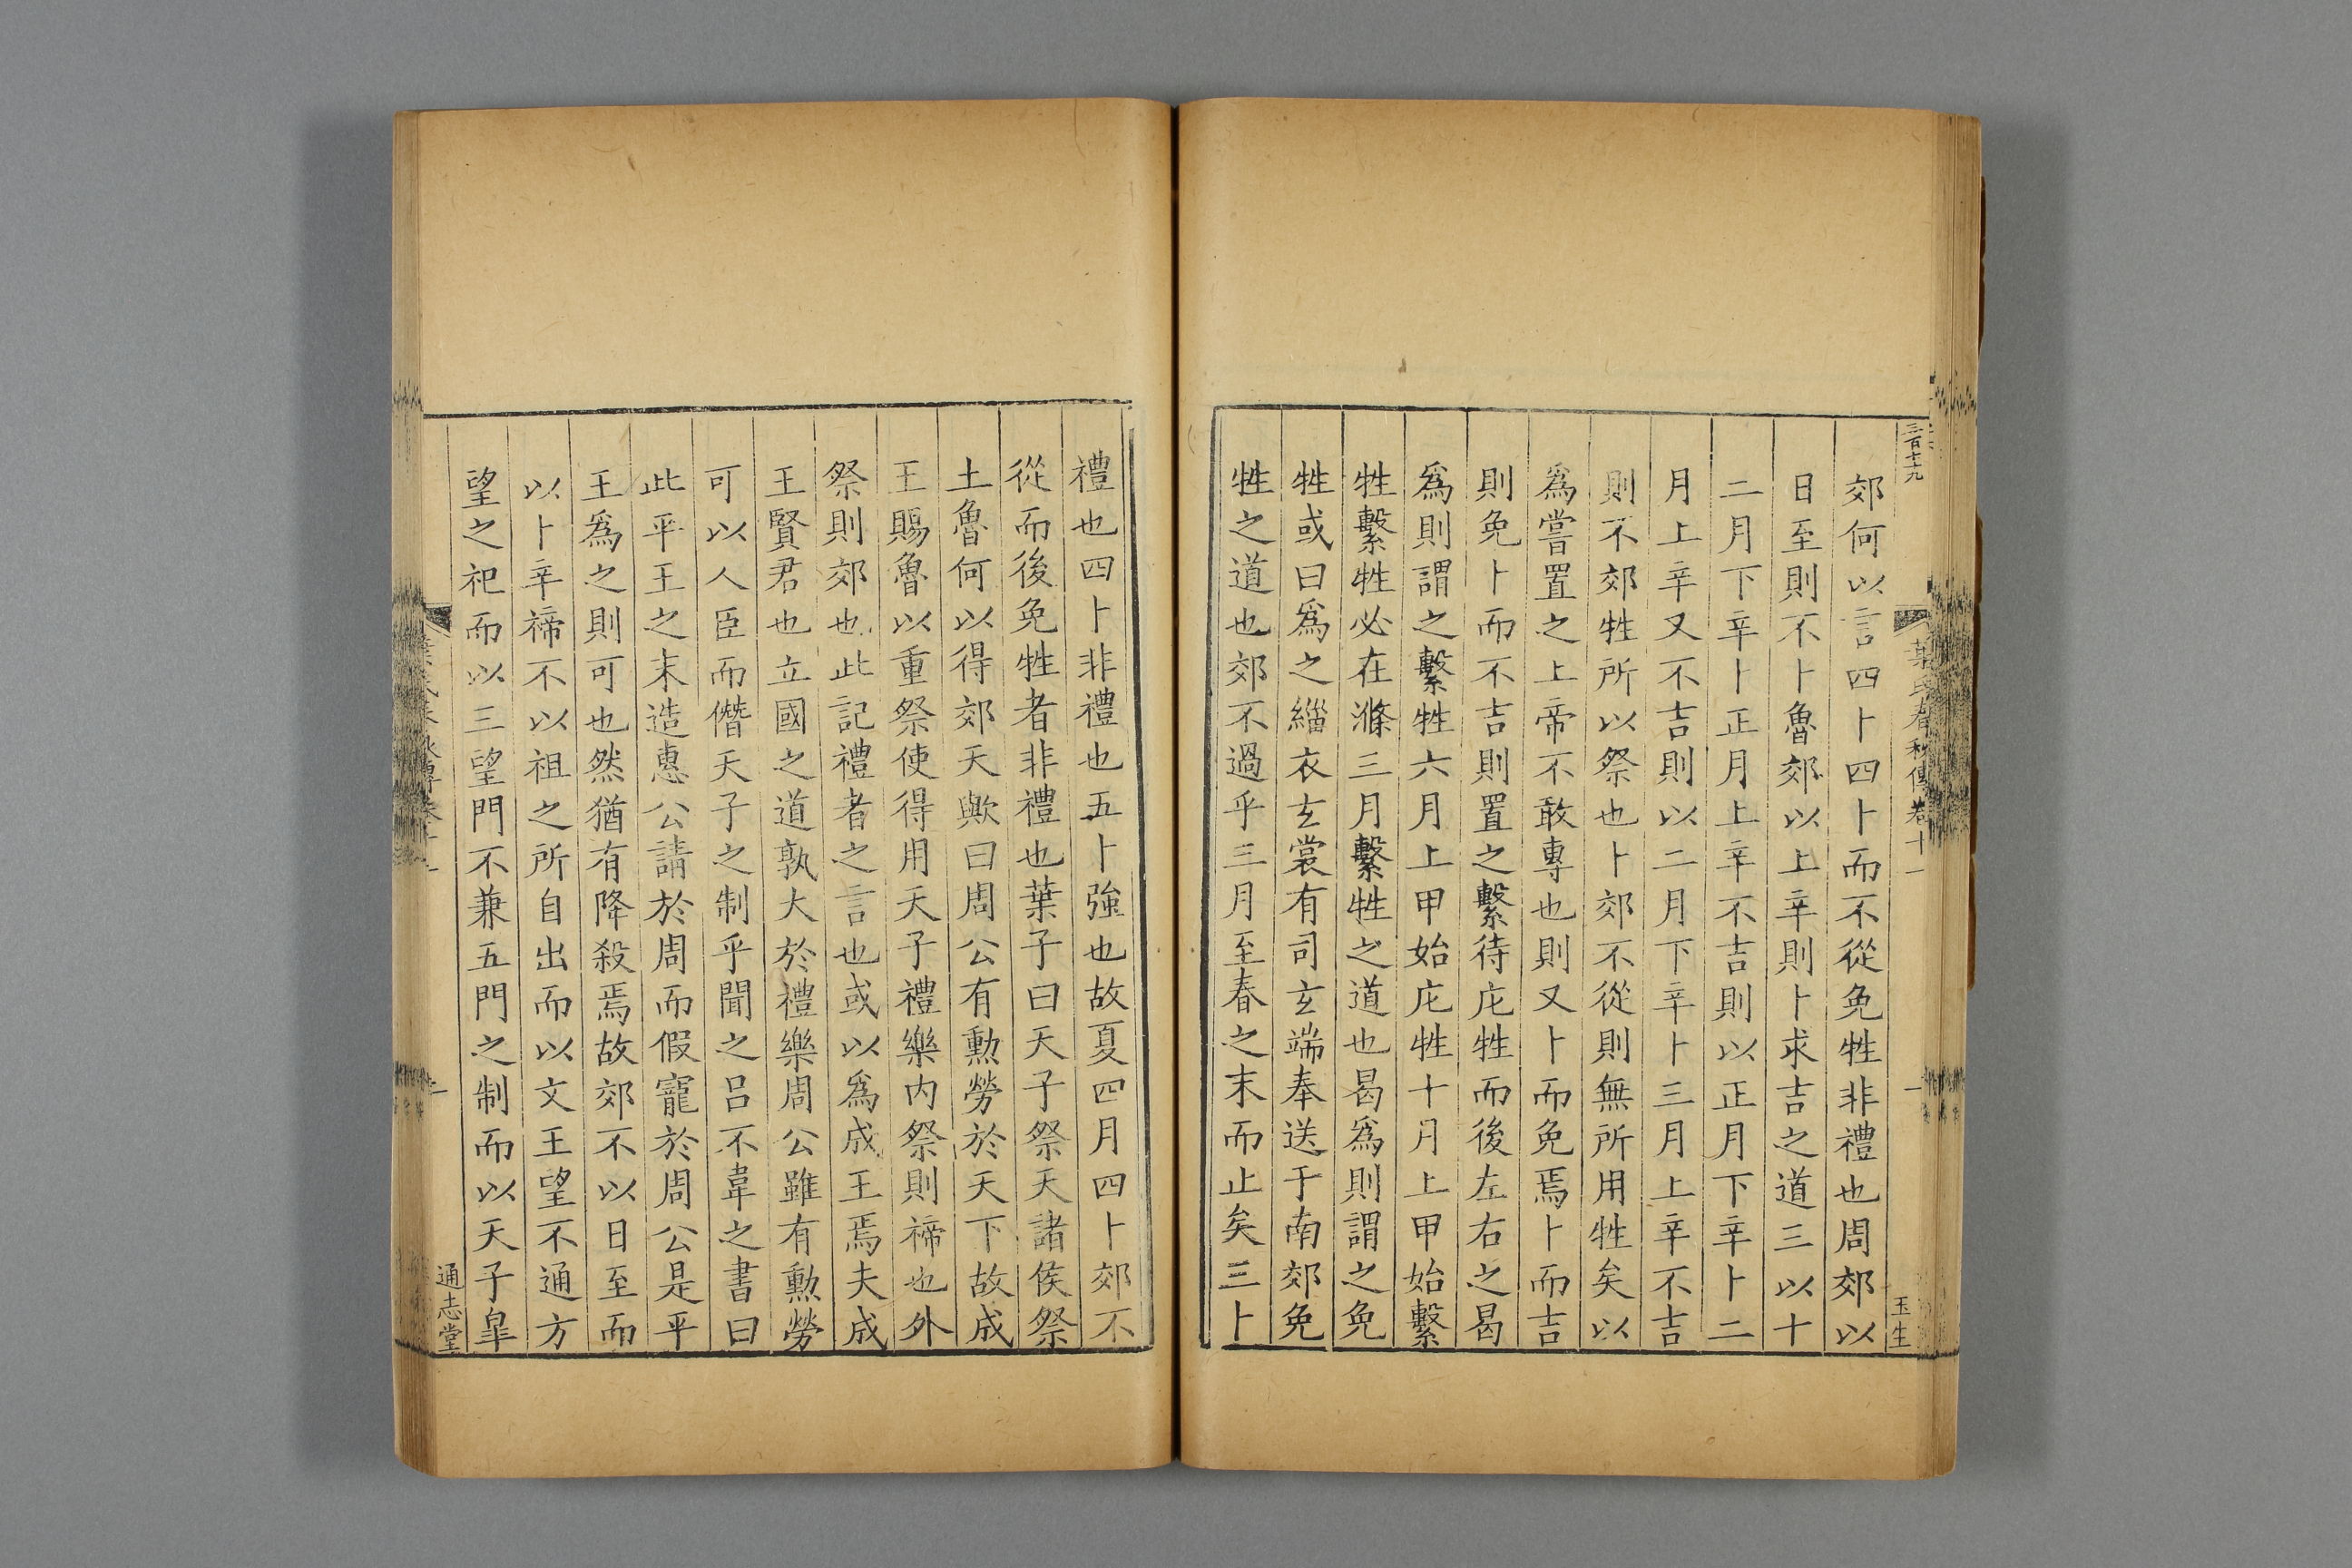 三百十九
葉氏春秋傳卷十一
一
玉生
郊何以言四卜四卜而不從免牲非禮也周郊以
日至則不卜魯郊以上辛則卜求吉之道三以十
二月下辛卜正月上辛不吉則以正月下辛卜二
月上辛又不吉則以二月下辛卜三月上辛不吉
則不郊牲所以祭也卜郊不從則無所用牲矣以
爲嘗置之上帝不敢專也則又卜而免焉卜而吉
則免卜而不吉則置之繫待庀牲而後左右之曷
爲則謂之繫牲六月上甲始庀牲十月上甲始繫
牲繫牲必在滌三月繫牲之道也曷爲則謂之免
牲或曰爲之緇衣玄裳有司玄端奉送于南郊免
牲之道也郊不過乎三月至春之末而止矣三卜
禮也四卜非禮也五卜強也故夏四月四卜郊不
從而後免牲者非禮也葉子曰天子祭天諸侯祭
土魯何以得郊天歟曰周公有勳勞於天下故成
王賜魯以重祭使得用天子禮樂内祭則禘也外
祭則郊也此記禮者之言也或以爲成王焉夫成
王賢君也立國之道孰大於禮樂周公雖有勳勞
可以人臣而僭天子之制乎聞之吕不韋之書曰
此平王之末造惠公請於周而假寵於周公是平
王爲之則可也然猶有降殺焉故郊不以日至而
以卜辛禘不以祖之所自出而以文王望不通方
望之祀而以三望門不兼五門之制而以天子皐
通志堂